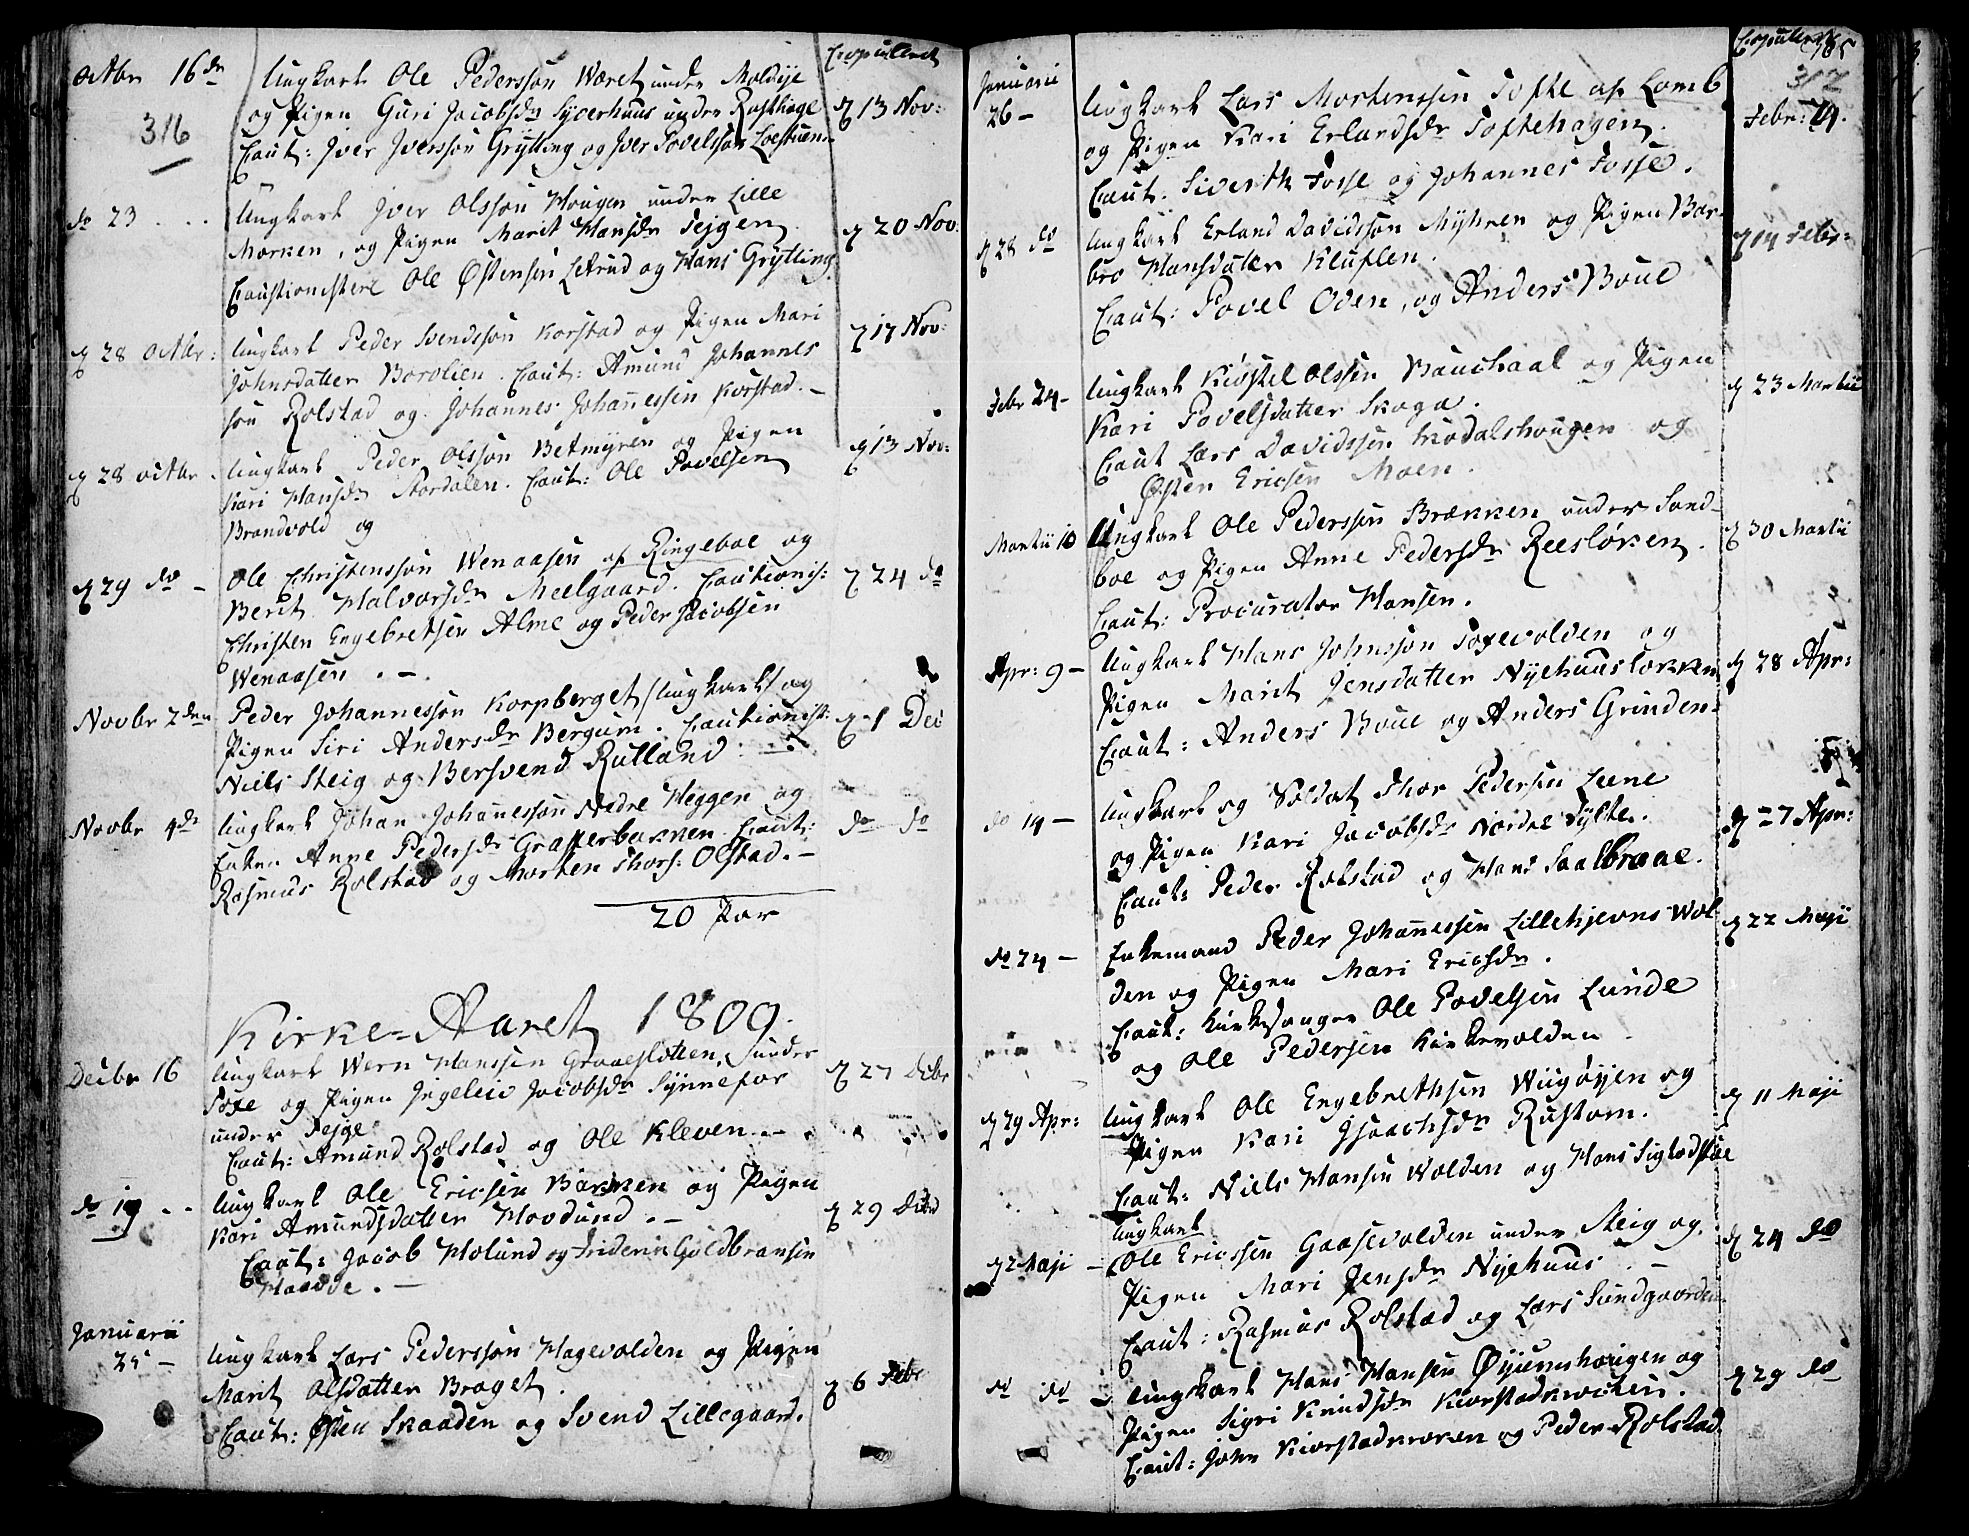 Copulered
Octbr 16de Ungkarl Ole Pederssøn Woret under Moldije
316
og Pigen Guri Jacobsdr Syverhuus under Rosthage d 13 Nov:
Caut: Jver Jverssøn Grytting og Jver Povelssøn Loestuen
do 23 Ungkarl Jver Olssøn Hougen under Lille
Morken, og Pigen Marit Hansdr Fejgen d 20 Nov:
Cautionistere Ole Østensen Letrud og Hans Grytting
d 28 Octbr: Ungkarl Peder Svendssøn Korstad og Pigen Mari d 17 Nov:
Johnsdatter Borolien. Caut: Amund Johannes
søn Rolstad og Johannes Johannessen Korstad. –
d 28 octbr. Ungkarl Peder Olssøn Betmyren og Pigen d 13 Nov:
Kari Hansdr Stordalen. Caut: Ole Povelsen
Brandvold og
d 29 do – Ole Christenssøn Wenaasen af Ringeboe og d 24 do
Berit Halvorsdr Meelgaard. Cautionis:
Christen Engebretsen Alme og Peder Jacobsen
Wenaasen . – .
Novbr 2den Peder Johannessøn Korpberget /Ungkarl/ og
Pigen Siri Andersdr Bergum. Cautionist: d 1 Dec
Niels Steig og Bersvend Rutland
Novbr 4de Ungkarl Johan Johannessøn Nedre Heggen og do do
Enken Anne Pedersdr Grafferbakken Caut:
Rasmus Rolstad og Morten Thors: Olstad. –
20 Par
Kirke-Aaret 1809.
Decbr 16 Ungkarl Wern Hanssen Graaesletten, under d 27 Decbr
Toxe og Pigen Jngeleic Jacobsdr Synnefor
under Fejge
Caut: Amund Rolstad og Ole Kleven. –
do 19 Ungkarl Ole Ericsen Bakken og Pigen
Kari Amundsdatter Hovdund. – d 29 Decbr
Caut: Jacob Holund og Friderik Guldbransen
Haave . –
Januarii
25 – Ungkarl Lars Pederssøn Hagevolden og Pigen
Marit Olsdatter Braget. d 6 Febr
Caut: Østen Skaaden og Svend Lillegaard.
Copulered
317
Januarii
26 – Ungkarl Lars Mortenssen Tofte af Lomb Febr: 14.
og Pigen Kari Erlandsdr Toftehagen.
Caut. Siverth Fosse og Johannes Fosse.
d 28 do Ungkarl Erland Davidssøn Myhren og Pigen Bar- d 14 Febr:
bro Hansdatter Kluften.
Caut: Povel Oden, og Anders Boue
Febr 24 – Ungkarl Kiøstel Olssen Bauchaal og Pigen d 23 Martii
Kari Povelsdatter Skoga.
Caut Lars Davidssen Modalshougen og
Østen Ericsen Moen.
Martii 10 Ungkarl Ole Pederssøn Brækken under Sand- d 30 Martii
boe og Pigen Anne Pedersdr Reesløkken.
Caut: Procurator Hansen.
Apr: 9 – Ungkarl Hans Johnssøn Toxevolden og
Pigen Marit Jensdatter Nyehuusløkken d 28 Apr:
Caut: Anders Boue og Anders Grinden.
do 14 – Ungkarl og Soldat Thor Pedersen Leene
og Pigen Kari Jacobsdr Nordre Sylte. d 27 Apr:
Caut: Peder Rolstad og Hans Saalbraae.
do 24 – Enkemand Peder Johannessen Lillehjevns Wol- d 22 Maji
den og Pigen Mari Ericsdr.
Caut: Kirkesanger Ole Povelsen Lunde
og Ole Pedersen Kirkevolden
d 29 Apr: Ungkarl Ole Engebrethsen Wiigøjen og d 11 Maji
Pigen Kari Jsaachsdr Rustom.
Caut: Niels Hansen Wolden og Hans Sigstadstue
Ungkarl
d 2 Maji – Ole Ericssen Gaasevolden under Steig og d 24 do
Pigen Mari Jensdr Nyehuus . –
Caut: Rasmus Rolstad og Lars Sundgaarden.
do do – Ungkarl Hans Hansen Øjumshougen og d 29 do
Pigen Sigri Knudsdr Kiorstadkrocken.
Caut: John Kiorstadkroken og Peder Rolstad.